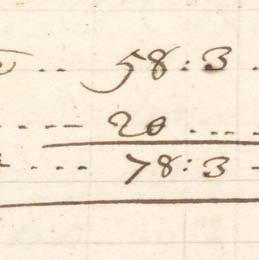 .. 58:3 .
---- 20 ....
... 78:3 -